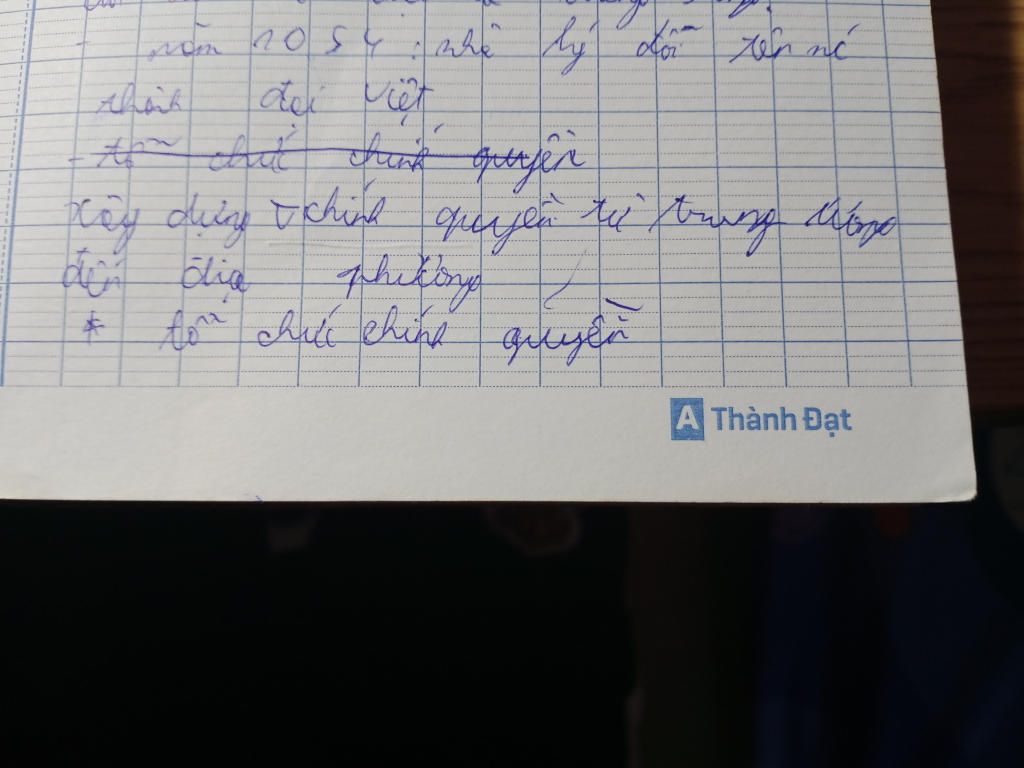 - năm 1054 : nhà lý đổi tên nc
thành đại Việt
- tổ chức chính quyền
xây dựng chính quyền từ trung ương
đến địa phương
* tổ chức chính quyền
A Thành Đạt